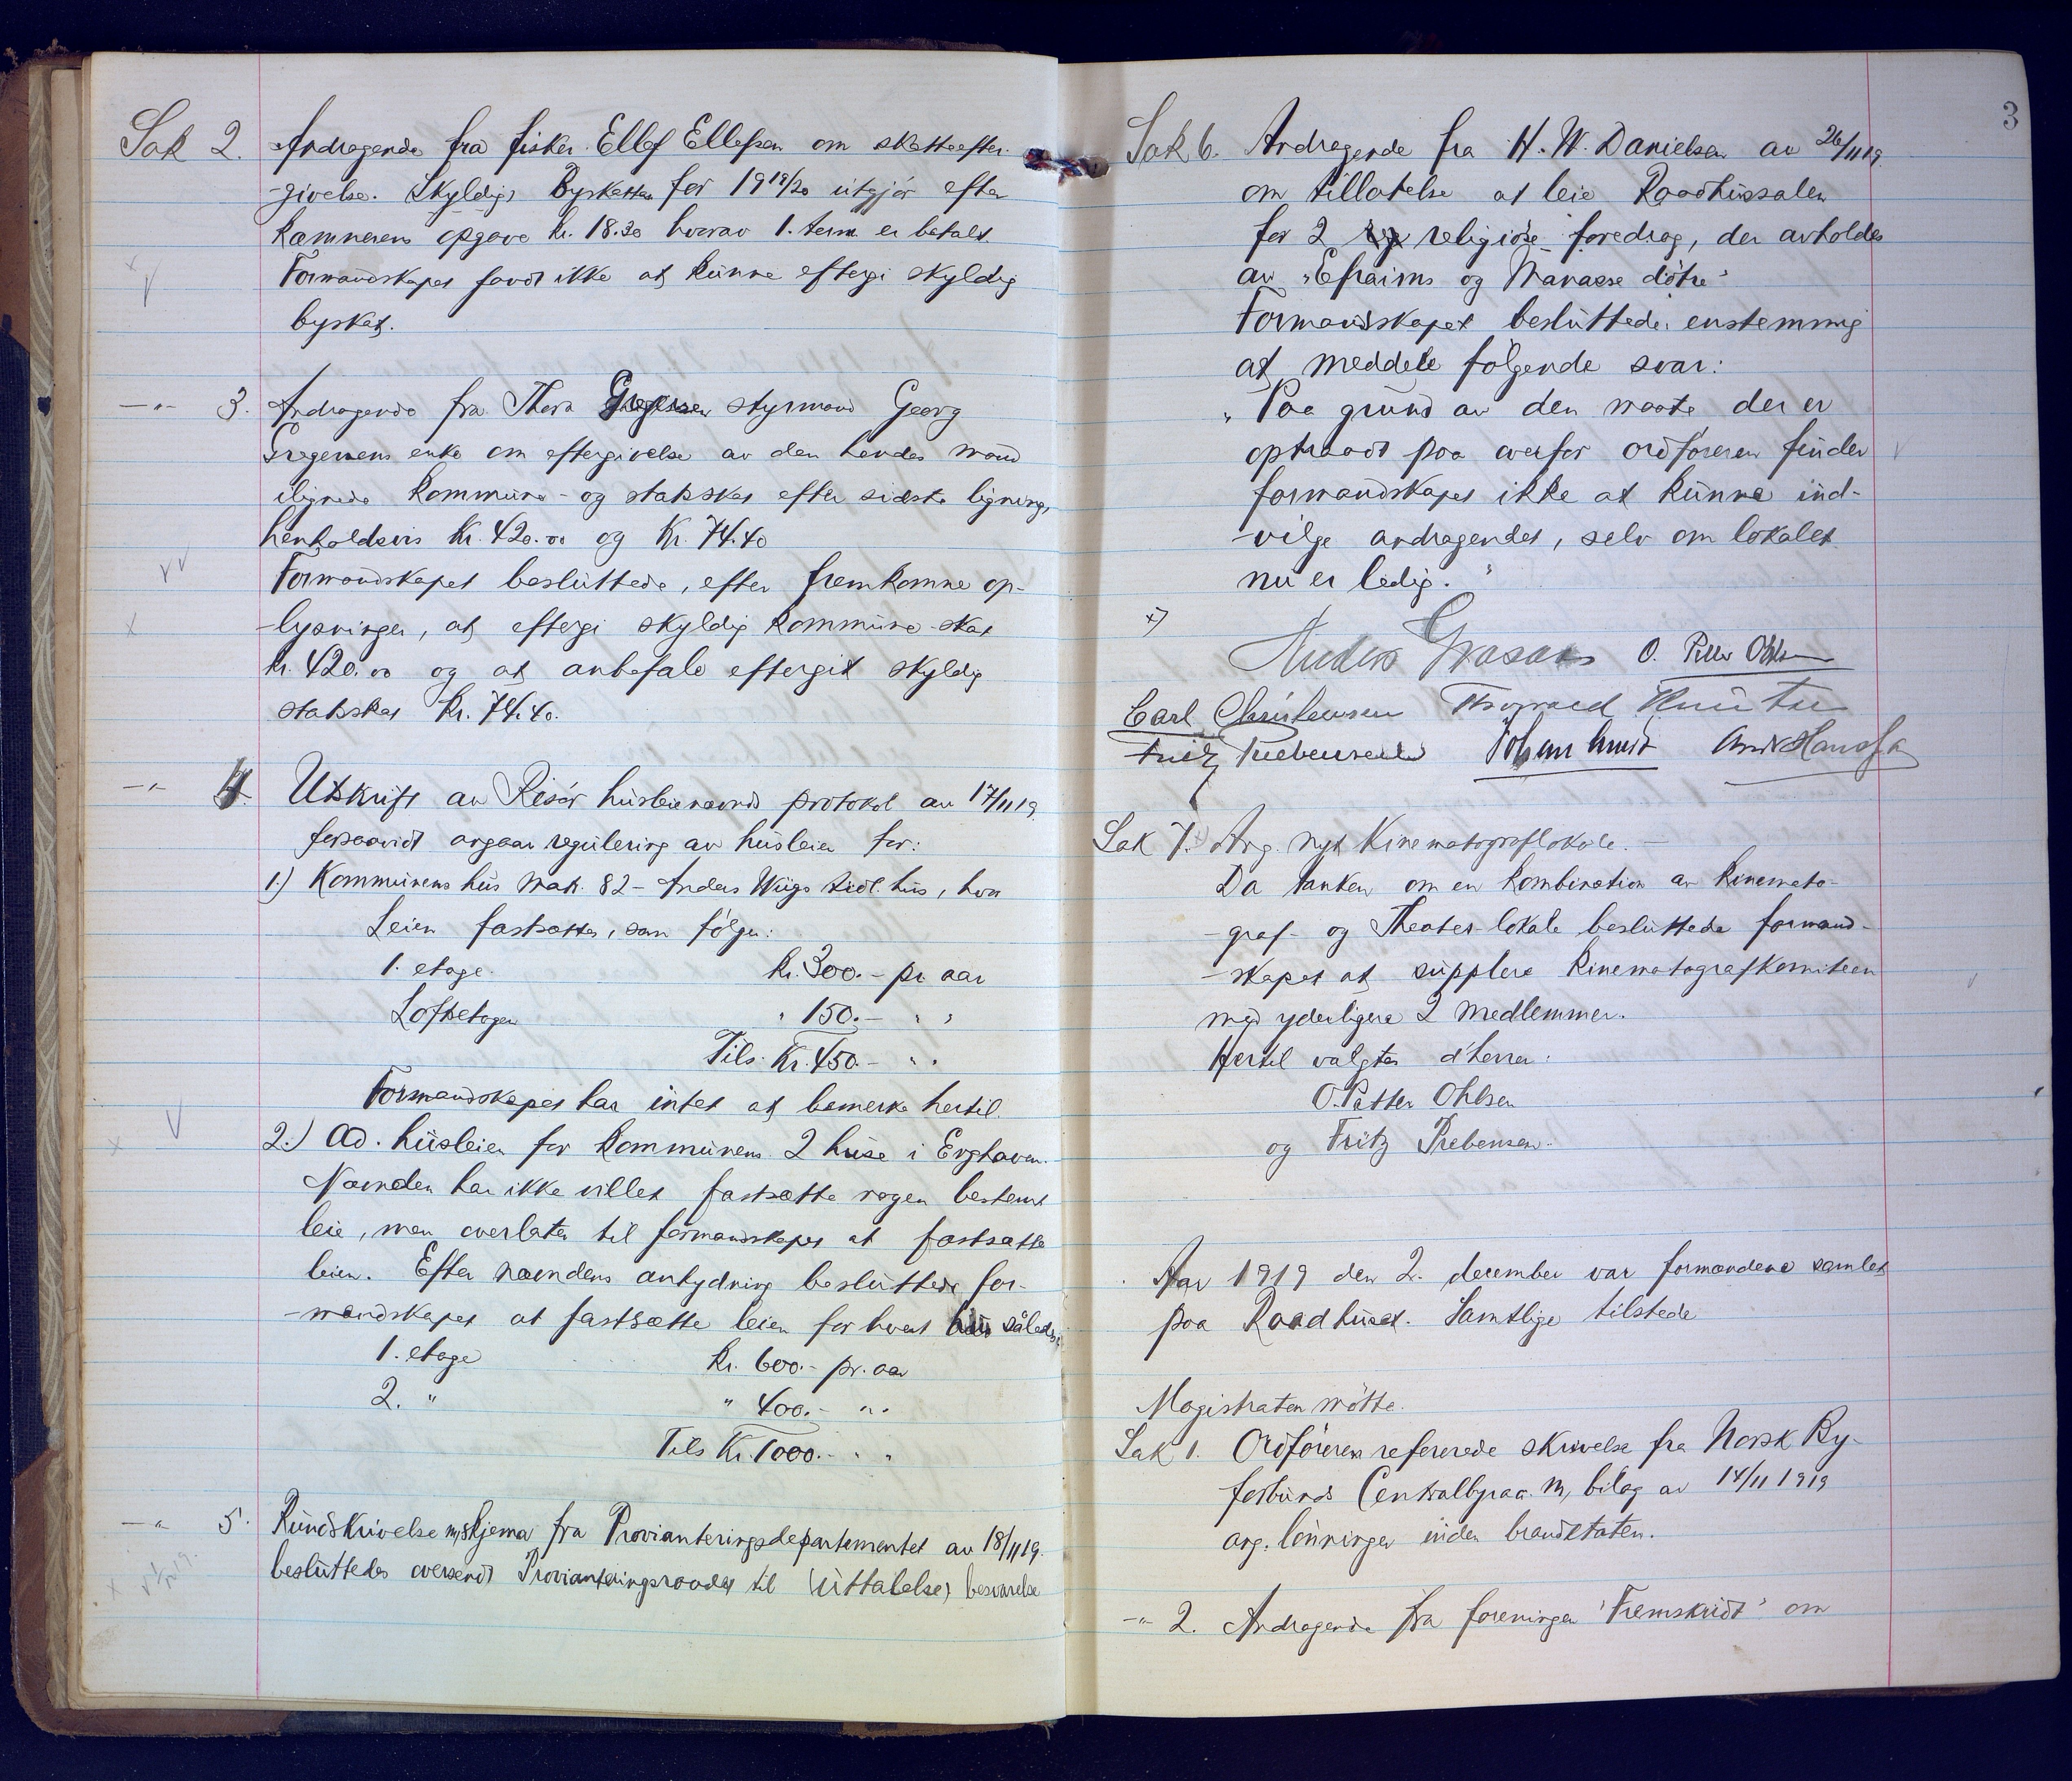 Sak 2. Andragende fra fisker Ellef Ellefsen om skatteefter-
-givelse. Skyldig Byskatten for 1919/20 utgjør efter
Kæmnerens opgave kr. 18.30 hvorav 1. term. er betalt.
Formandskapet fandt ikke at kunne eftergi skyldig
byskat.
—"— 3. Andragende fra Thora Gregersen styrmand Georg
Gregersens enke om eftergivelse av den hendes mand
ilignede kommune- og statsskat efter sidste ligning,
henholdsvis Kr. 420.00 og Kr. 74.40
Formandskapet besluttede, efter fremkomne op-
-lysninger, at eftergi skyldig kommune-skat
kr. 420.00 og at anbefale eftergit skyldig
statsskat Kr. 74.40.
—"— 4. Utskrift av Risør husleienævnds protokol av 17/11 19.
forsaavidt angaar regulering av husleien for:
1.) Kommunens hus Matr. 82 - Anders Wiigs tidl. hus, hvor
Leien fastsattes, som følger:
1. etage. kr. 300.- pr. aar
Loftsetagen " 150.- " "
Tils. Kr. 450.- " "
Formandskapet har intet at bemerke hertil.
2.) Ad. husleien for kommunens 2 huse i Enghaven.
Nævnden har ikke villet fastsætte nogen bestemt
leie, men overlater til formandskapet at fastsætte
leien. Efter nævndens antydning besluttede for-
-mandskapet at fastsætte leien for hvert hus således:
1. etage kr. 600.- pr. aar
2. " " 400.- " "
Tils Kr. 1000.- " "
—"— 5. Rundskrivelse m/skjema fra Provianteringsdepartementet av 18/11 19.
besluttedes oversendt Provianteringsraadet til (uttalelse) besvarelse
3
Sak 6. Andragende fra H. W. Danielsen av 26/11 19.
om tillatelse at leie Raadhussalen
for 2 religiøse foredrag, der avholdes
av "Efraims og Manasse døtre"
Formandskapet besluttede enstemmig
at meddele følgende svar:
"Paa grund av den maate der er
optraadt paa overfor ordføreren finder
formandskapet ikke at kunne ind-
-vilge andragendet, selv om lokalet
nu er ledig."
x)
O. Petter Ohlsen
Carl Christensen Thorvald Knutsen
Fritz Prebensen
Sak 7. x) Ang. nyt Kinematograflokale. —
Da tanken om en kombination av kinemato-
-graf- og Theater-lokale besluttede formand-
-skapet at supplere kinematografkomiteen
med yderligere 2 medlemmer.
Hertil valgtes d'herrer:
O. Petter Ohlsen
og Fritz Prebensen.
Aar 1919 den 2. december var formændene samlet
paa Raadhuset. Samtlige tilstede
Magistraten møtte.
Sak 1. Ordføreren refererede skrivelse fra Norsk By-
forbunds Centralbyraa. m, bilag av 14/11 1919
ang. lønninger inden brandetaten.
—"— 2. Andragende fra foreningen "Fremskridt" om